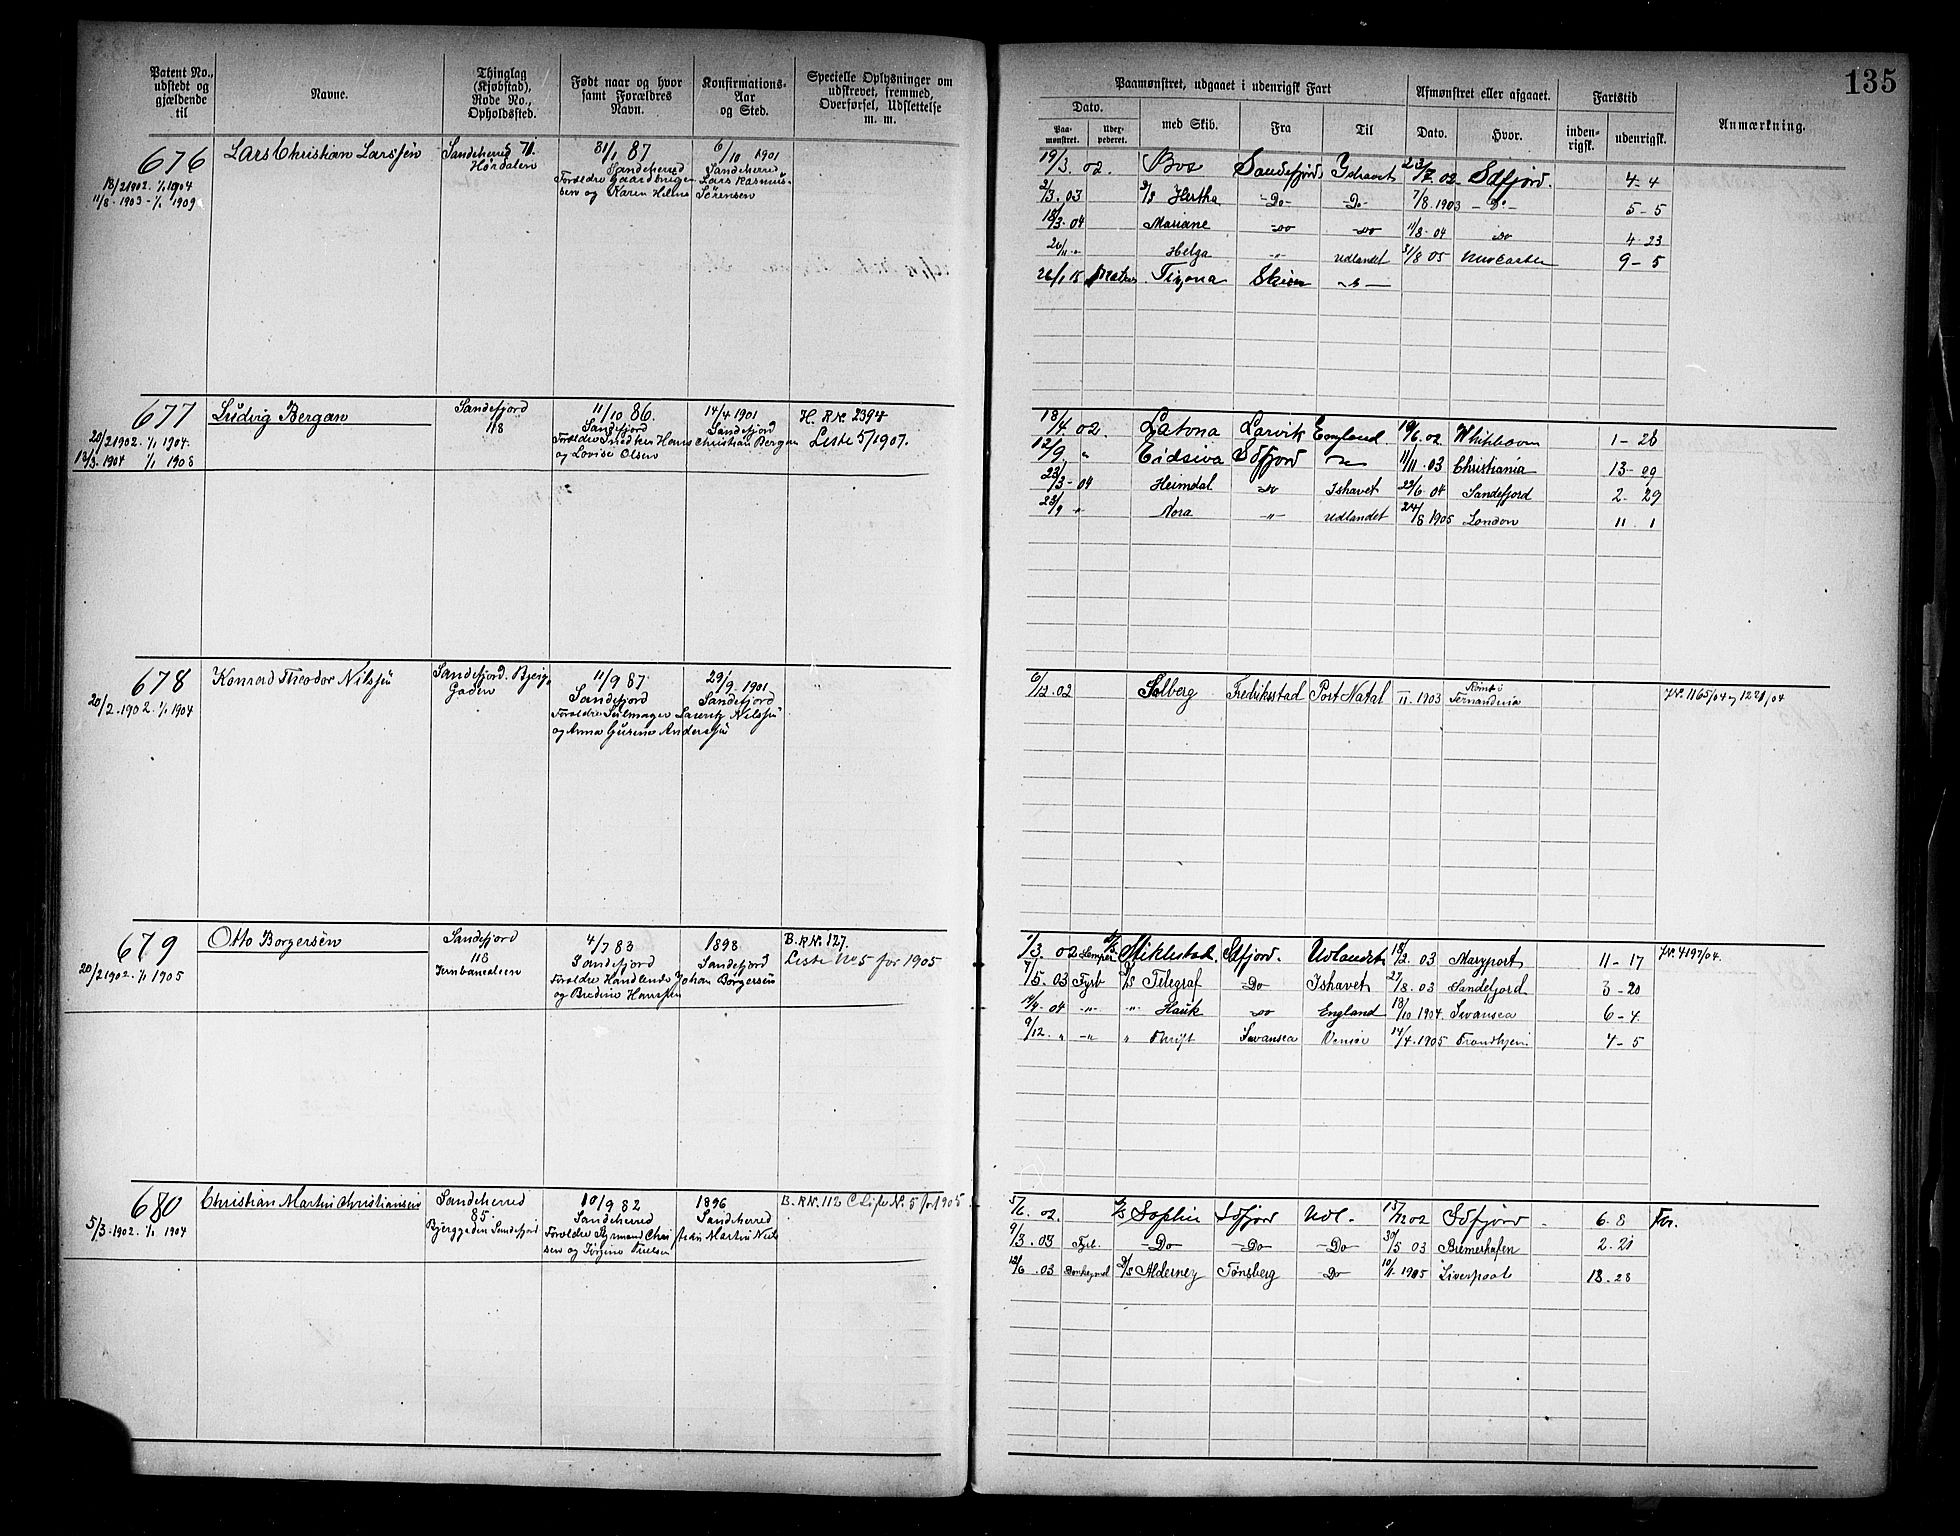 135
Patent No., udstedt og gjældende til
Navne.
Thinglag (Kjøbstad), Rode No., Opholdssted.
Født naar og hvor samt Forældres Navn.
Konfirmations- Aar og Sted.
Specielle Oplysninger om udskrevet, fremmed, Overførsel, Udslettelse m. m.
Paamønstret, udgaaet i udenrigsk Fart
Afmønstret eller afgaaet.
Fartstid
Anmærkning.
Dato.
Paa- mønstret.
Udex- pederet.
med Skib.
Fra
Til
Dato.
Hvor.
inden- rigsk.
udenrigsk.
676 Lars Christian Larssen
18/2 1902. 1/1 1904
11/8 - 1903 - 1/1 1909
Sandeherred 71.
31/1 87
Sandeherred
Forældre Gaardbruger
og Karen Helene
6/10 1901
Sandeherred
Lars Rasmus-
Sørensen
19/3. 02. Bos Sandefjord Ishavet 23/7. 02 Sdfjord. 4-4
2/3. 03 D/S Hertha -Do- -Do- 7/8. 1903 -Do- 5-5
18/3-04 Mariane Do Do 11/8-04 Do 4-23
Helga " Udlandet 31/8 05 9-5
26/1 15 Skien
677 Ludvig Bergan
20/2 1902. 1/1 1904.
12/3. 1904 1/1 1908
Sandefjord
118
11/10 86.
Sandefjord
Forældre Snedker Hans Christian Bergan
og Lovise Olsen
14/4 1901
Sandefjord
H. RN. 2394
Liste 5/1907.
18/4. 02. Latona Larvik England. 19/6. 02 1-26
12/9 " Eidsiva Sdfjord 11/11. 03 Christiania 13-29
23/3-04 Heimdal Do Ishavet 22/6. 04 Sandefjord 2-29
23/9 " Nora " Udlandet 24/8 1905 London 11-1
678 Konrad Theodor Nilssen
20/2. 1902. 1/1 1904
Sandefjord. Bjerg-
Gaden
11/9 87
Sandefjord
Forældre Seilmager Laurits Nilssen
og Anna Gurine Anderssen
29/9 1901
Sandefjord
6/12. 02 Solberg Fredriksstad Port Natal 11. 1903 Rømte Fernandina No. 1165/04 og 1228/04
679 Otto Borgersen
20/2 1902. 1/1 1905
Sandefjord
118
Jernbanealeen
4/7 83
Sandefjord
Forældre Handlende Johan Borgersen
og Bredine Hanssen
1898
Sandefjord
B. RN. 127.
Liste No 5 for 1905
1/3. 02 D/S Miklestad. Sdfjord. Udlandet 18/2. 03 Maryport 11-17 No. 4197/04.
7/5. 03 Fyrb D/S Telegraf Do Ishavet 27/8. 03 Sandefjord 3-20
14/4-04 " " Hauk Do England 18/10 1904. Swansea 6-4
9/12. " " " Swansea 14/4. 1905 Trondhjem 4-5
680 Christian Martin Christiansen
5/3. 1902. 1/1 1904
Sandeherred
85.
Bjerggaden Sandefjord
10/9 82
Sandeherred
Forældre Styrmand Chri
sen og Jørgine Nielsen
1896
Sandeherred
B. RN. 112 Liste No. 5 for 1905.
5/6. 02. D/S Sophie Sdfjord Udl. 15/12 02 Sdfjord 6-8
9/3. 03 Fyrb. -Do- -Do- -Do- 30/5 03 Bremerhafen 2.21
12/6. 03 D/S Alderney Tønsberg -Do 10/8. 1905 Liverpool 13-28